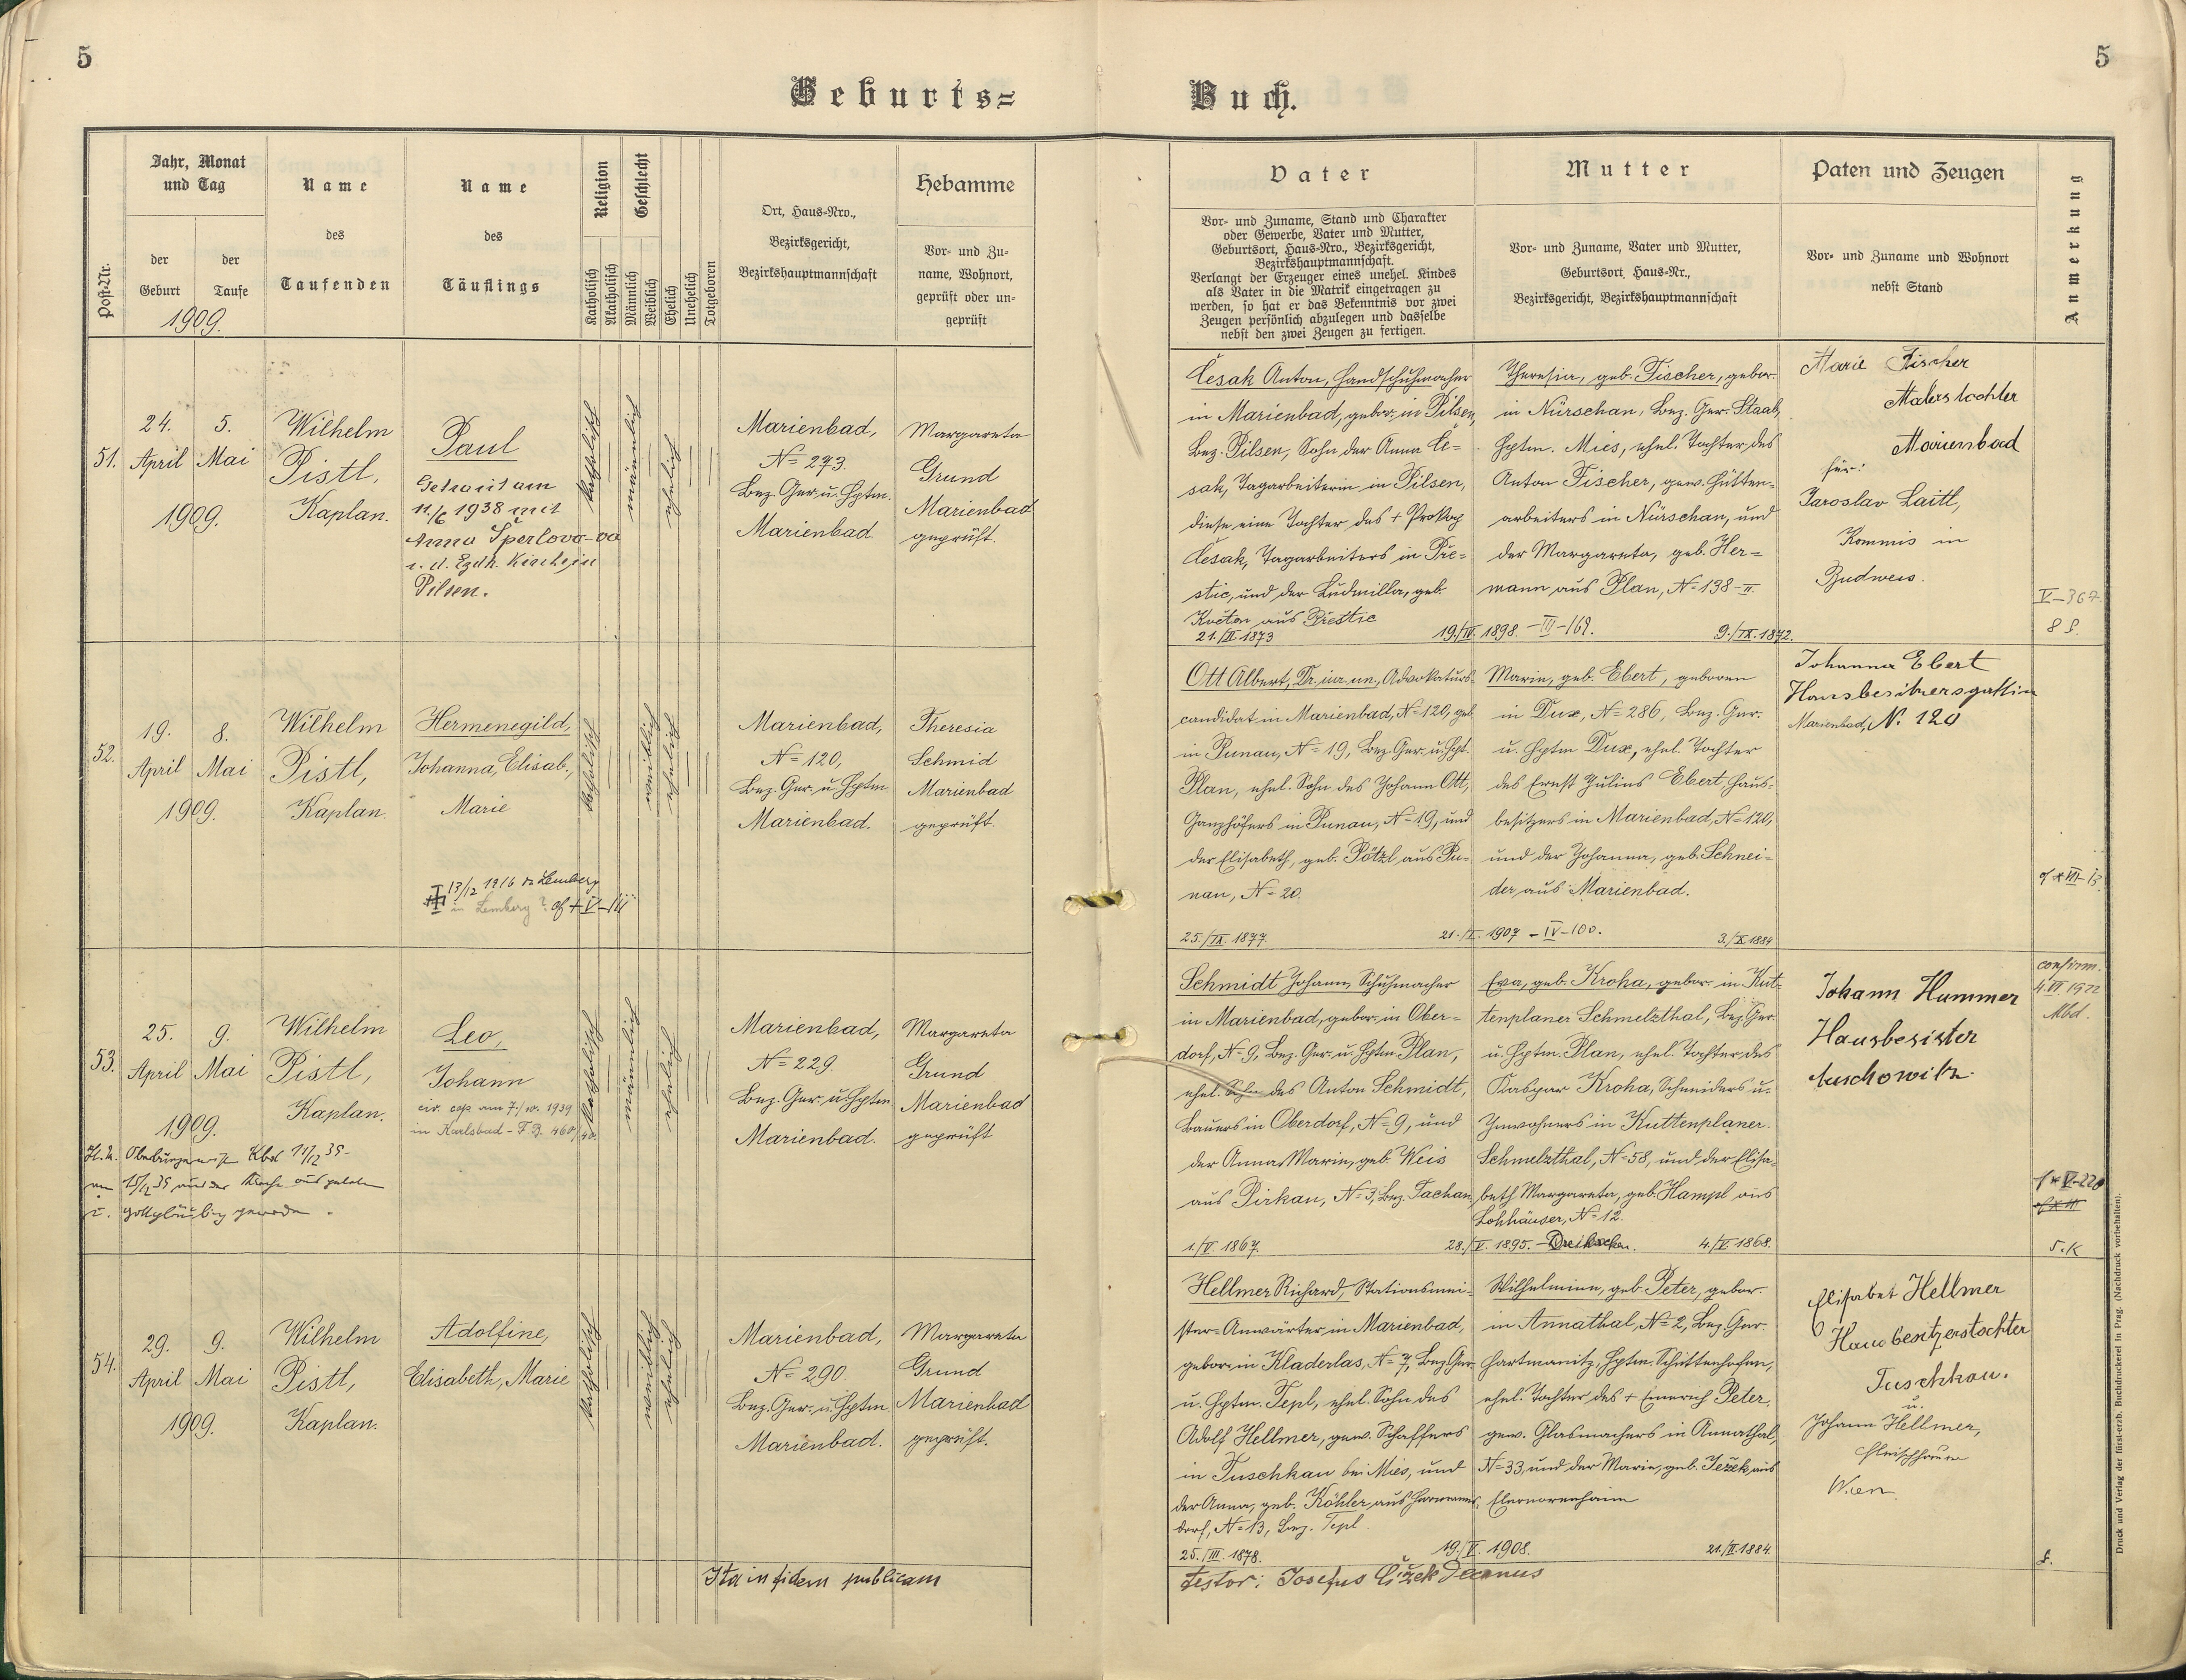 5
5
Geburts=
Buch.
Post-Nr.
Jahr, Monat
und Tag
der
Geburt
der
Taufe
1909.
Name
des
Taufenden
Name
des
Täuflings
Religion
Katholisch
Akatholisch
Geschlecht
Männlich
Weiblich
Ehelich
Unehelich
Totgeboren
Ort, Haus=Nro.,
Bezirksgericht,
Bezirkshauptmannschaft
Hebamme
Vor= und Zu=
name, Wohnort,
geprüft oder un=
geprüft
Vater
Vor= und Zuname, Stand und Charakter
oder Gewerbe, Vater und Mutter,
Geburtsort, Haus=Nro., Bezirksgericht,
Bezirkshauptmannschaft.
Verlangt der Erzeuger eines unehel. Kindes
als Vater in die Matrik eingetragen zu
werden, so hat er das Bekenntnis vor zwei
Zeugen persönlich abzulegen und dasselbe
nebst den zwei Zeugen zu fertigen.
Mutter
Vor= und Zuname, Vater und Mutter,
Geburtsort, Haus=Nr.,
Bezirksgericht, Bezirkshauptmannschaft
Paten und Zeugen
Vor= und Zuname und Wohnort
nebst Stand
Anmerkung
51.
24.
April
5.
Mai
1909.
Wilhelm
Pistl,
Kaplan.
Paul
Getraut am
11./6 1938 mit
Anna Šperlova
Kirche in
Pilsen.
katholisch
männlich
ehelich
Marienbad,
No 273.
Bez. Ger. u. Hptm.
Marienbad.
Margareta
Grund
Marienbad
geprüft.
Česak Anton, Handschuhmacher
in Marienbad, gebor. in Pilsen,
Bez. Pilsen, Sohn der Anna Če=
sak, Tagarbeiterin in Pilsen,
diese eine Tochter des + Prokop
Česak, Tagarbeiters in Pře=
stic, und der Ludmilla, geb.
Květon aus Přestic
21./II. 1873
19./IV. 1898. - III - 169.
Theresia, geb. Fischer, gebor.
in Nürschan, Bez. Ger. Staab,
Hptm. Mies, ehel. Tochter des
Anton Fischer, gew. Hütten=
arbeiters in Nürschan, und
der Margareta, geb. Her=
mann aus Plan, No 138-II.
9./IX. 1872.
Marie Fischer
Malers tochter
Marienbad
für:
Jaroslav Laitl,
Kommis in
Budweis.
V-367.
52.
19.
April
8.
Mai
1909.
Wilhelm
Pistl,
Kaplan.
Hermenegild,
Johanna, Elisab.,
Marie
13/12 1916 Lemberg
in Lemberg?
katholisch
weiblich
ehelich
Marienbad,
No 120,
Bez. Ger. u. Hptm.
Marienbad.
Theresia
Schmid
Marienbad
geprüft.
Ott Albert, Dr. iur. un., Advokaturs=
candidat in Marienbad, No 120, geb.
in Punau, No 19, Bez. Ger. u. Hpt.
Plan, ehel. Sohn des Johann Ott,
Ganzhöfers in Punau, No 19, und
der Elisabeth, geb. Pötzl aus Pu=
nau, No 20.
25./IX. 1877.
21./I. 1907 - IV-100.
Marie, geb. Ebert, geboren
in Dux, No 286, Bez. Ger.
u. Hptm Dux, ehel. Tochter
des Ernst Julius Ebert, Haus=
besitzers in Marienbad, No 120,
und der Johanna, geb. Schnei=
der aus Marienbad.
3./X. 1884
Johanna Ebert
Hausbesitzersgattin
Marienbad, N. 120
53.
25.
April
9.
Mai
1909.
Wilhelm
Pistl,
Kaplan.
Leo,
Johann
civ. cop. am 7./10. 1939
in Karlsbad - F.B. 460/
katholisch
männlich
ehelich
Marienbad,
No 229.
Bez. Ger. u. Hptm
Marienbad.
Margareta
Grund
Marienbad
geprüft
Schmidt Johann, Schuhmacher
in Marienbad, gebor. in Ober=
dorf, No 9, Bez. Ger. u. Hptm. Plan,
ehel. Sohn des Anton Schmidt,
Bauers in Oberdorf, No 9, und
der Anna Maria, geb. Weis
aus Pirkau, No 3, Bez. Tachau
1./V. 1867.
28./V. 1895. -
Eva, geb. Kroha, gebor. in Kut=
tenplaner Schmelzthal, Bez. Ger.
u. Hptm. Plan, ehel. Tochter des
Kaspar Kroha, Schneiders u.
Inwohners in Kuttenplaner.
Schmelzthal, No 58, und der Elisa=
beth Margareta, geb. Hampl aus
Lohhäuser, No 12.
4./V. 1868.
Johann Hummer
Hausbesister
Auschowitz.
confirm.
4. VI 1922
Mbd.
54.
29.
April
9.
Mai
1909.
Wilhelm
Pistl,
Kaplan.
Adolfine,
Elisabeth, Marie
katholisch
weiblich
ehelich
Marienbad,
No 290
Bez. Ger. u. Hptm
Marienbad.
Margareta
Grund
Marienbad
geprüft.
Hellmer Richard, Stationsmei=
ster=Anwärter in Marienbad,
gebor. in Kladerlas, No 7, Bez. Ger.
u. Hptm. Tepl, ehel. Sohn des
Adolf Hellmer, gew. Schaffers
in Tuschkau bei Mies, und
der Anna, geb. Köhler aus Hermanns=
dorf, No 13, Bez. Tepl.
25./III. 1878.
19./V. 1908.
Wilhelmine, geb. Peter, gebor.
in Annathal, No 2, Bez. Ger.
Hartmanitz, Hptm. Schüttenhofen,
ehel. Tochter des + Emerich Peter,
gew. Glasmachers in Annathal,
No 33, und der Marie, geb. Ježek aus
Eleonorenhain
21./II. 1884.
Elisabet Hellmer
Hausbesitzerstochter
Tuschkau.
u.
Johann Hellmer,
Fleischhauer
Wien.
Ita in fidem publicam
testor: Josefus Čížek Decanus
Druck und Verlag der fürst-erzb. Buchdruckerei in Prag. (Nachdruck vorbehalten).